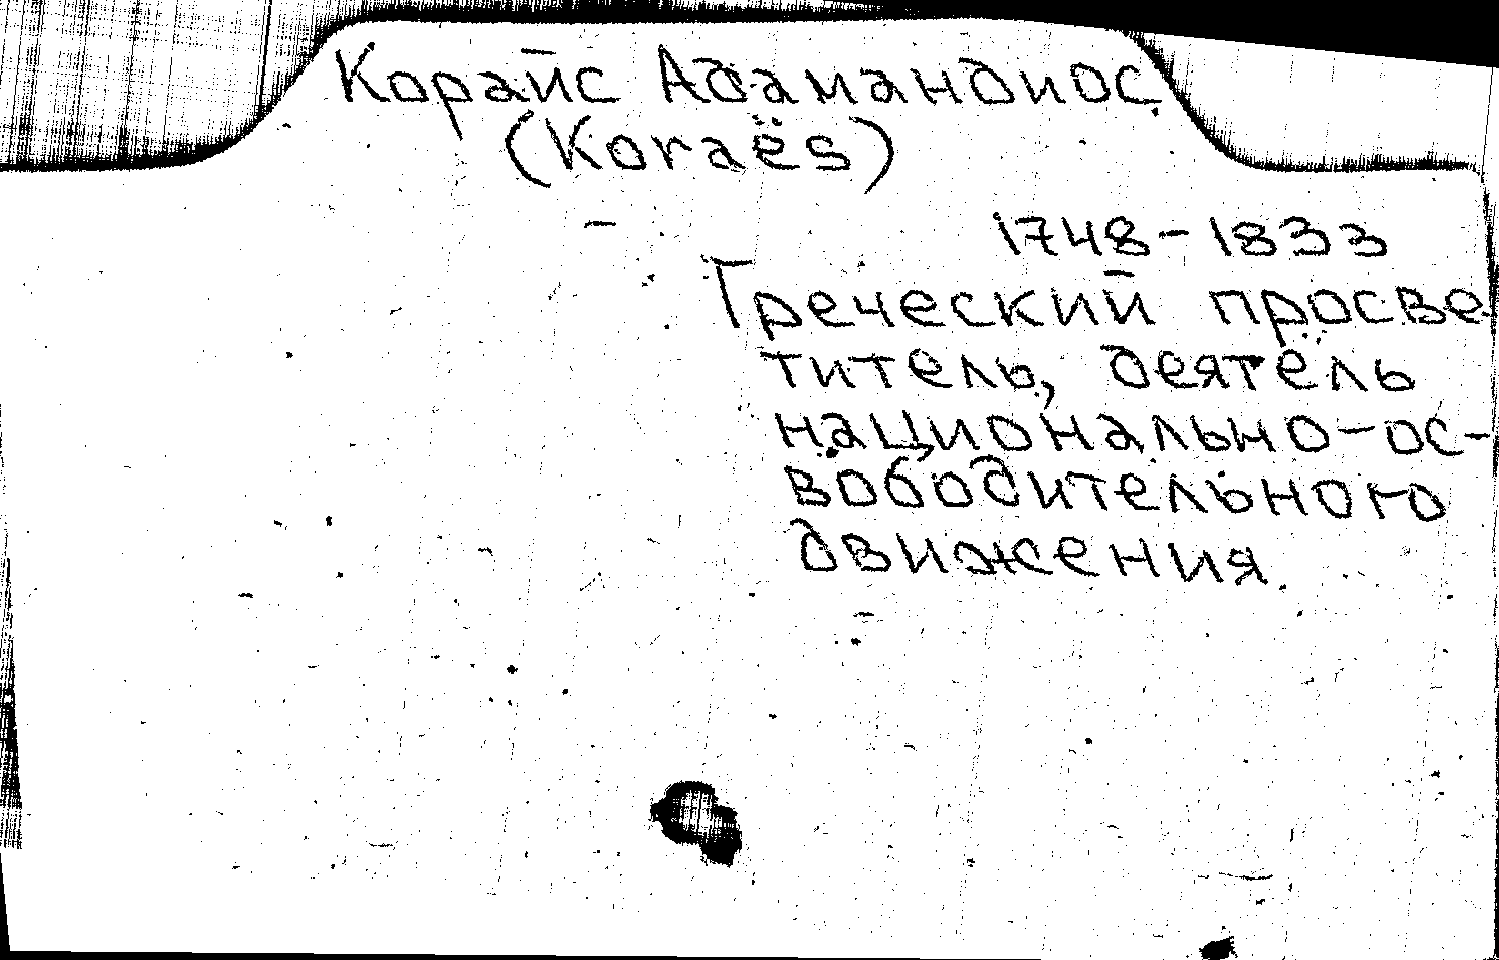 Корайс Адамандиос
(Koraës)
1748-1833
Греческий просве-
титель, деятель
национально-ос-
вободительного
движения.